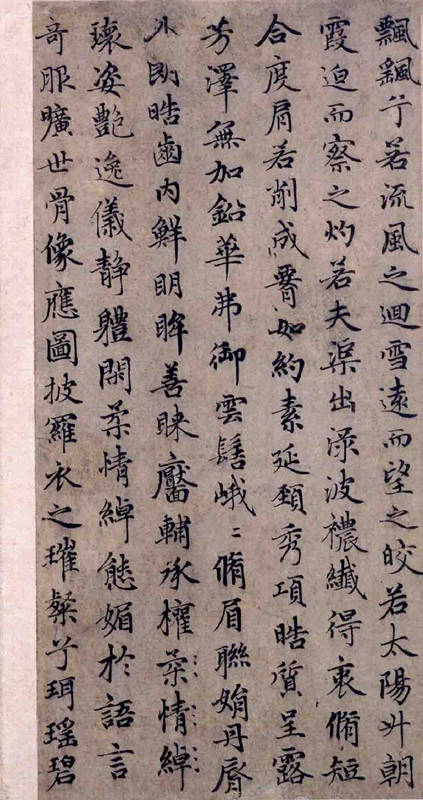 飄飖兮若流風之迴雪遠而望之皎若太陽升朝
霞迫而察之灼若夫渠出渌波襛纖得衷脩短
合度肩若削成腰如約素延頸秀項皓質呈露
芳澤無加鉛華弗御雲髻峨〻脩眉聯娟丹脣
外朗皓齒內鮮明眸善睞靨輔承權柔情綽
瓌姿艷逸儀靜體閑柔情綽態媚於語言
奇服曠世骨像應圖披羅衣之璀粲兮珥瑤碧